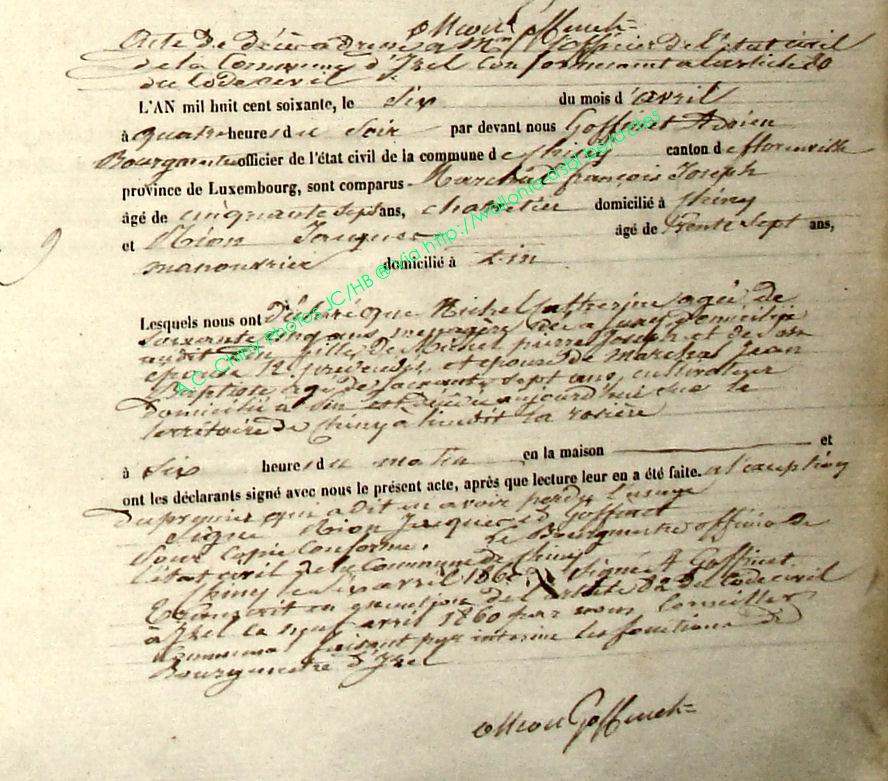 Acte de décès adressé à Mr l'officier de l'état civil
de la Commune d'Izel conformément à l'article 80
du Code civil
L'AN mil huit cent soixante, le six du mois d'avril
à quatre heures du soir par devant nous Goffinet Adrien
Bourgmestre officier de l'état civil de la commune de Chiny canton de florenville
province de Luxembourg, sont comparus Maréchal françois Joseph
âgé de cinquante sept ans, domicilié à Chiny
et Nion Jacques âgé de trente sept ans,
manouvrier domicilié à
Lesquels nous ont déclaré que Michel Catherine agée de
soixante cinq ans, menagère, née à domiciliée
audit fille de Michel pierre Joseph et de son
epouse et epouse de marechal Jean
Baptiste agé de soixante sept ans, cultivateur
domicilié à est décédée aujourd'hui sur le
territoire de Chiny a lieudit la rosière
à six heures du matin en la maison et
ont les déclarants signé avec nous le présent acte, après que lecture leur en a été faite. a l'exception
du premier qui a dit en avoir perdu l'usage
signé Nion Jacques et Goffinet
Pour Copie Conforme. Le Bourgmestre officier de
l'état civil de la Commune de Chiny
Chiny le six avril 1860 signé A Goffinet.
Transcrit en de l'article 82 du Code civil
à Izel le neuf avril 1860 par nous Conseiller
Communal faisant par interim les fonctions de
Bourgmestre d'Izel
A.C. Chiny Photos JC/HB ® Via http://wallonia-asbl.org/actes